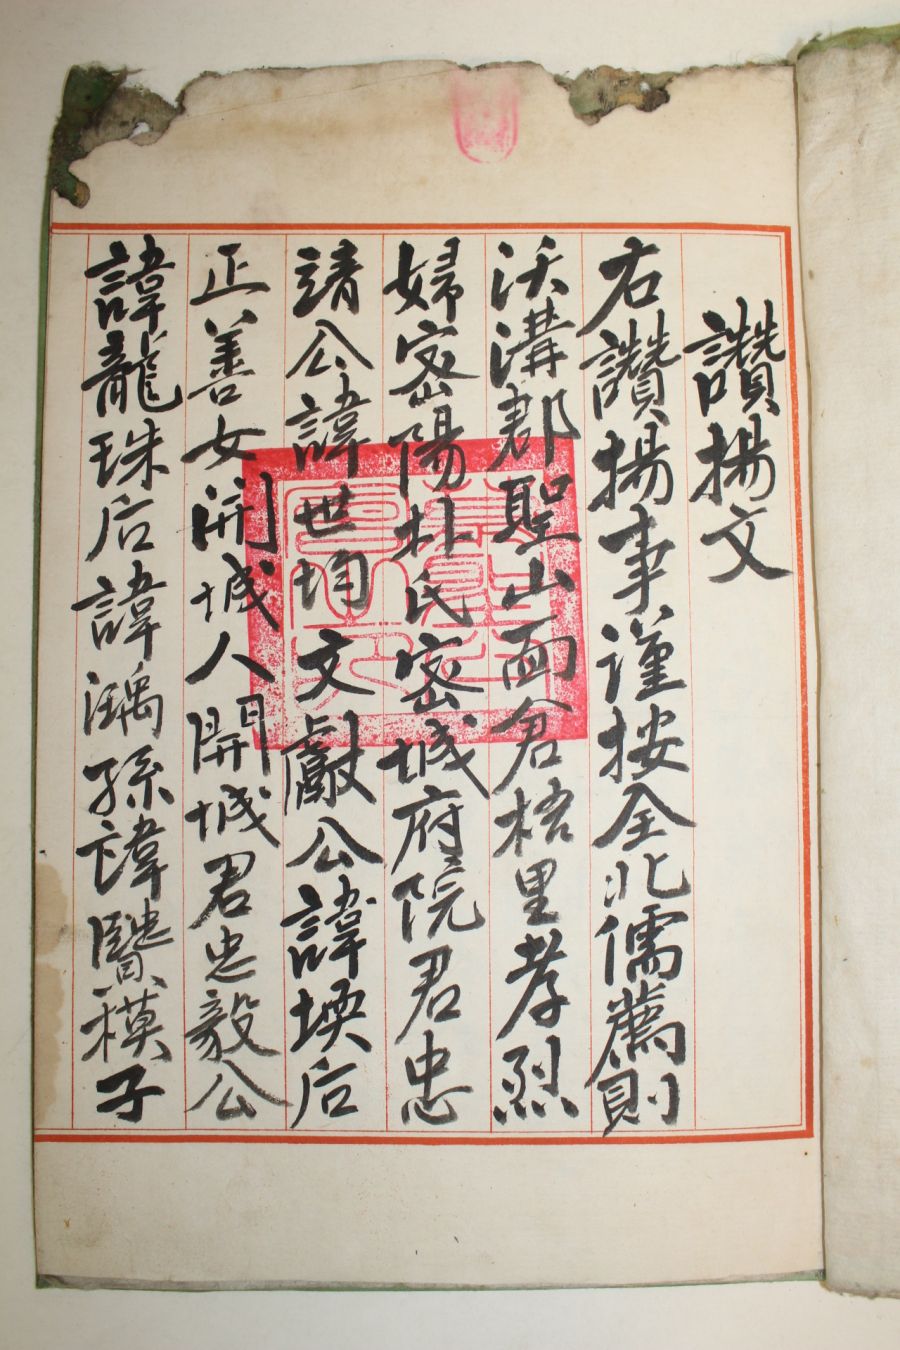 讚揚文
右讚揚事謹按全北儒薦則
沃溝郡聖山面倉梧里孝烈
婦密陽朴氏密城府院君忠
靖公諱世均文獻公諱㙉后
正善女開城人開城君忠毅公
諱龍珠后諱瀰孫諱賢模子